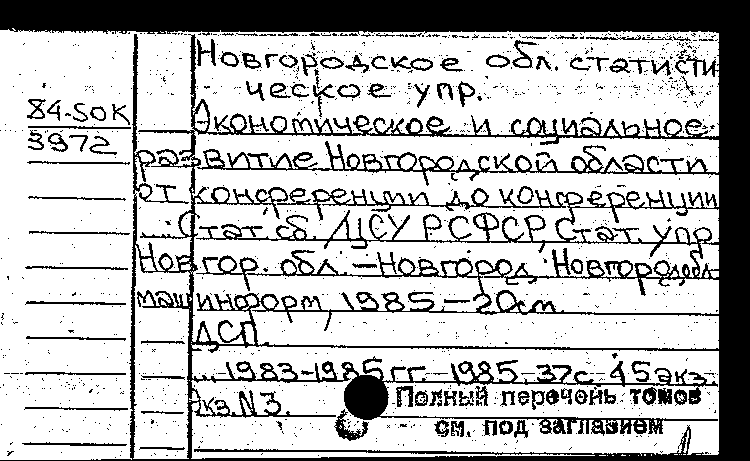 Новгородское обл. статисти
ческое упр.
84-SOK
3972
Экономическое и социальное
развитие Новгородской области
от конференции до конференции
...: Стат. сб. / ЦСУ РСФСР, Стат. упр.
Новгор. обл. – Новгород: Новгородобл
машинформ, 1985. – 20см.
ДСП.
... 1983-1985 гг. 1985. 37с. 45экз.
Экз. N 3.
Полный перечень томов
см. под заглавием